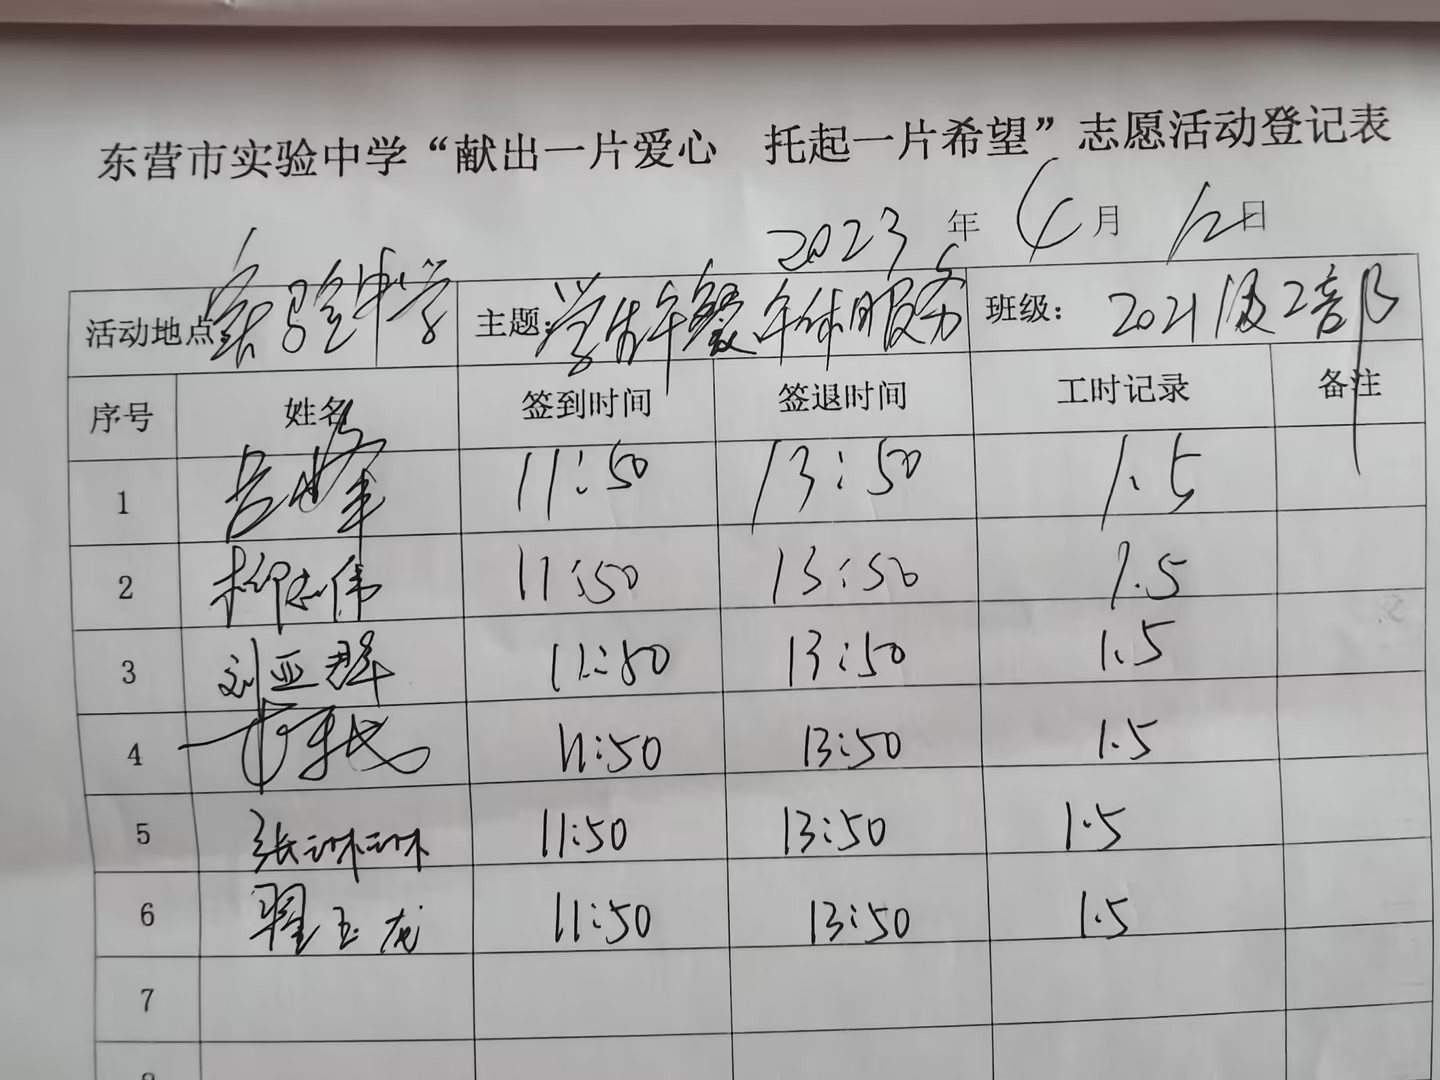 东营市实验中学“献出一片爱心 托起一片希望”志愿活动登记表
2023年4月12日
活动地点 实验中学 主题:学生午餐午休服务 班级: 2021级2部
序号 姓名 签到时间 签退时间 工时记录 备注
1 11:50 13:50 1.5
2 柳志伟 11:50 13:50 1.5
3 刘亚群 11:50 13:50 1.5
4 11:50 13:50 1.5
5 张琳琳 11:50 13:50 1.5
6 翟玉龙 11:50 13:50 1.5
7